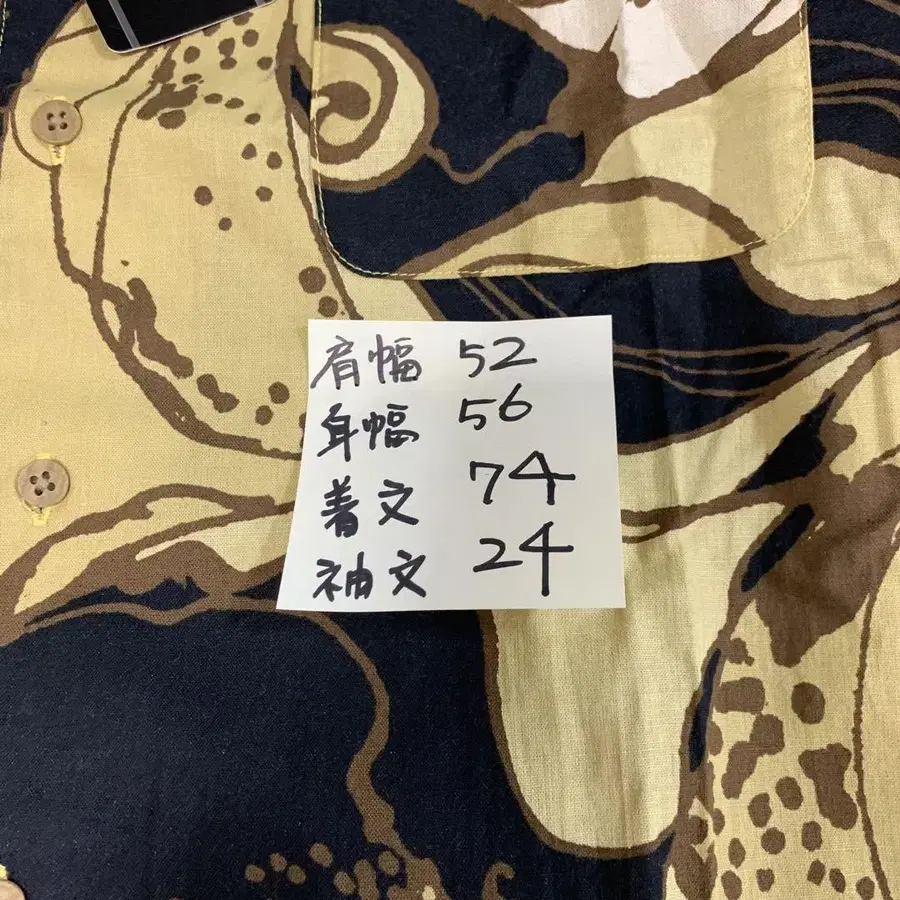 肩幅 52
身幅 56
着文 74
袖文 24